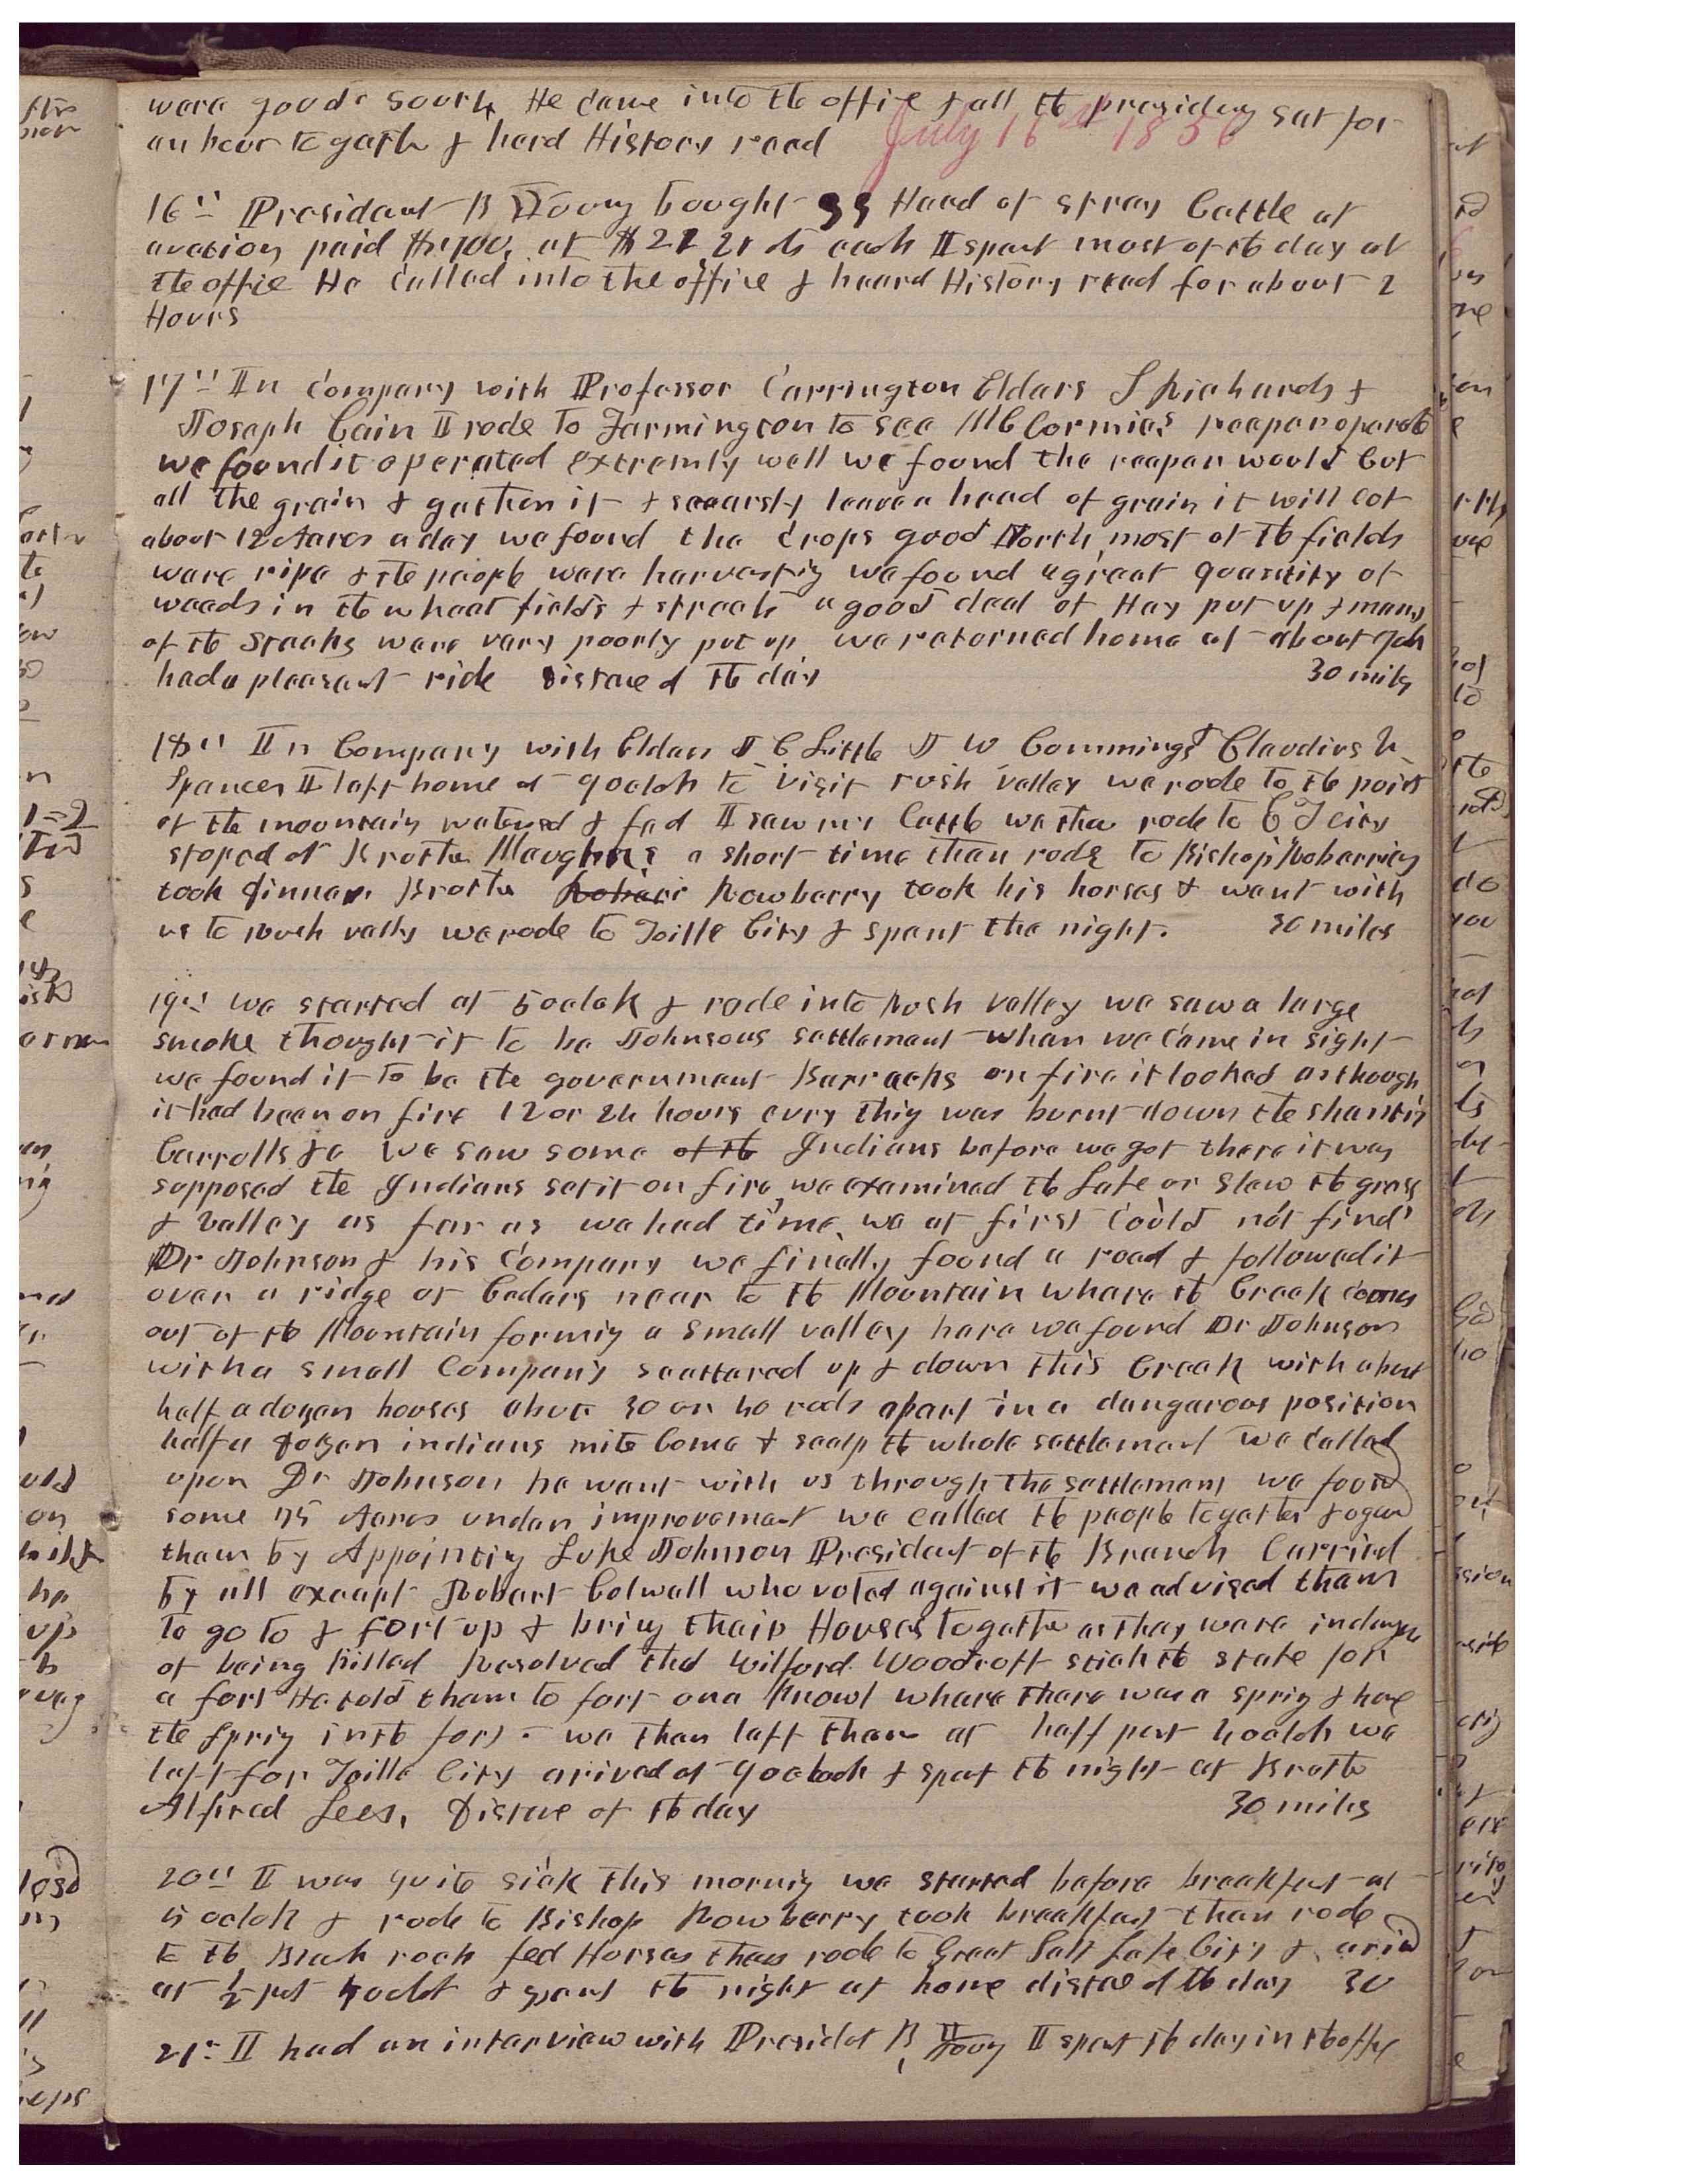 ware goods South, He came into the office & all the presidency sat for
an hour together & herd History read
July 16th 1856
16th President B Young bought 33 Head of stray Cattle at
auction paid $700, at $21,21 cts each I spent most of the day at
the office He called into the office & heard History read for about 2
Hours
17th In Company with Professor Carrington Elders S Richards &
Joseph Cain I rode to Farmington to see McCormics reaper operate
we found it operated extremly well we found the reaper would Cut
all the grain & gather it & scearsly leave a head of grain it will cut
about 12 Acres a day we found the Crops good North, most of the fields
ware ripe & the people ware harvesting we found a great quantity of
weeds in the wheat fields & streets a good deal of Hay put up & many
of the Stacks ware vary poorly put up we returned home at about 7oclk
had a pleasant ride Distance of the day 30 mils
18th In Company with Elder J C Little J W Cummings Claudius V
Spencer I left home at 9 oclok to visit rush valley we rode to the point
of the mountain watered & fed I saw my Cattle we then rode to E T City
stoped at Brother Maughn's a short time than rode to Bishop Robarries
took dinner. Brother Rowberry took his horses & went with
us to rush vally we rode to Toille City & spent the night. 30 miles
19th we started at 5 oclok & rode into Rush valley we saw a large
smoke thought it to be Johnsons settlement when we came in sight
we found it to be the government Barracks on fire it looked as though
it had been on fire 12 or 24 hours evry thing was burnt down the shantis
Carralls &c We saw some of the Indians before we got there it was
supposed the Indians set it on fire, we examined the Lake or Slew the grass
& valley as far as we had time, we at first Could not find
Dr Johnson & his Company we finally found a road & followed it
over a ridge of Cedars near to the Mountain whare the Creek comes
out of the Mountain forming a small valley here we found Dr Johnson
with a small Company scattared up & down this Creek with about
half a dozen houses about 30 or 40 rods apart in a dangerous position
half a dozen indians mite Come & scalp the whole settlement we called
upon Dr Johnson he went with us through the settlement we found
some 75 Acres under improvement we called the people together & organ
them by Appointing Luke Johnson President of the Branch Carried
by all except Robert Colwell who voted against it we advised them
to go to & fort up & bring their Houses together as they ware in danger
of being killed Resolved that Wilford Woodruff stick the stake for
a fort He told them to fort on a knowl whare there was a spring & have
the spring in the fort. we than left them at half past 4 oclock we
left for Toille City arived at 9 oclock & spent the night at Brother
Alfred Lees, Distance of the day 30 mils
20th I was quite sick this morning we started before breakfast at
5 oclok & rode to Bishop Rowberry took breakfast than rode
to the Black rock fed Horses then rode to Great Salt Lake City & arivd
at ½ past 4 oclok & spent the night at home distance of the day 30
21st I had an interview with President B, Young I spent the day in the office